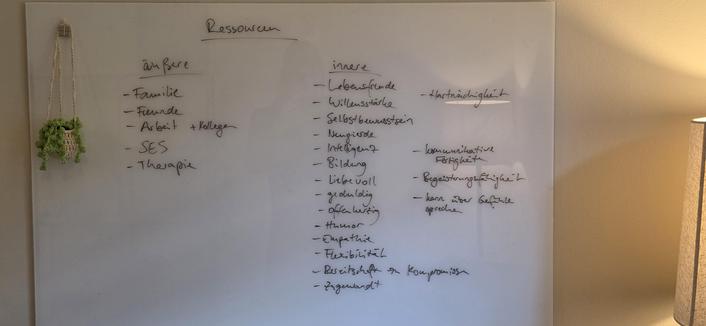 Ressourcen
äußere
- Familie
- Freunde
- Arbeit + Kollegen
- SES
- Therapie
innere
- Lebensfreude
- Willensstärke
- Selbstbewusstsein
- Neugierde
- Intelligenz
- Bildung
- Liebevoll
- geduldig
- offenherzig
- Humor
- Empathie
- Flexibilität
- Bereitschaft zu Kompromissen
- Zugewandt
- Hartnäckigkeit
- kommunikative
Fähigkeiten
- Begeisterungsfähigkeit
- kann über Gefühle
sprechen